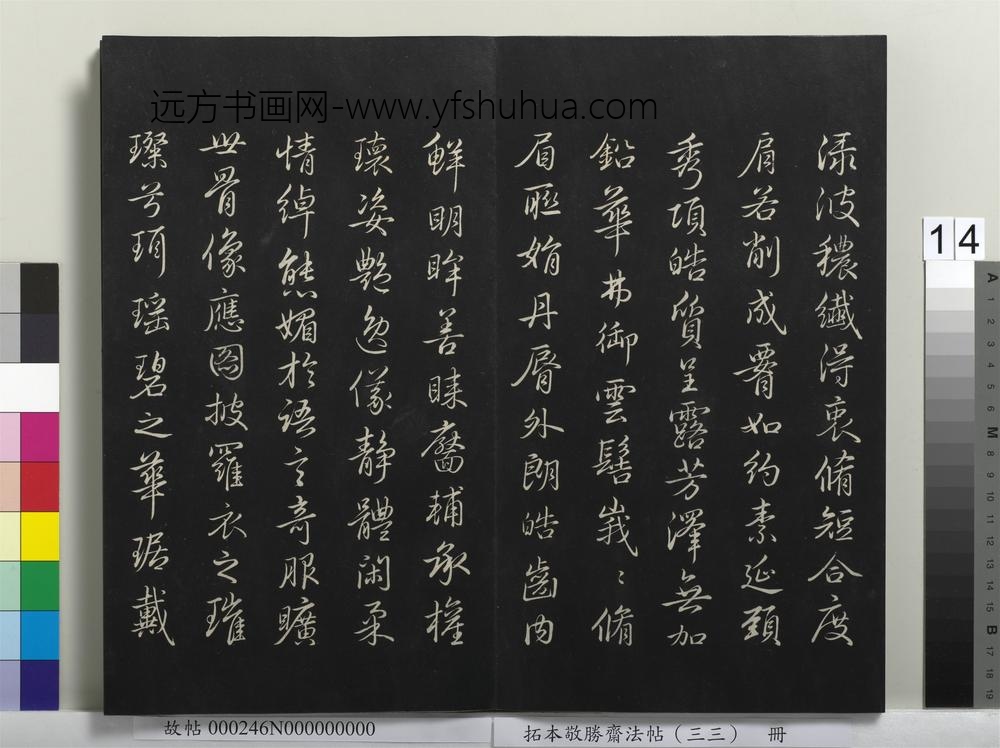 远方书画网-www.yfshuhua.com
渌波穠纖得衷脩短合度
肩若削成腰如約素延頸
秀項皓質呈露芳澤無加
鉛華弗御雲髻峩〻脩
眉聯娟丹脣外朗皓齒内
鮮明眸善睞靨輔承權
瓌姿艷逸儀靜體閑柔
情綽態媚於語言奇服曠
世骨像應圖披羅衣之璀
璨兮珥瑤碧之華琚戴
14
A 1 2 3 4 5 6 M 8 9 10 11 12 13 14 15 B 17 18 19
故帖 000246N000000000
拓本敬勝齋法帖（三三） 冊